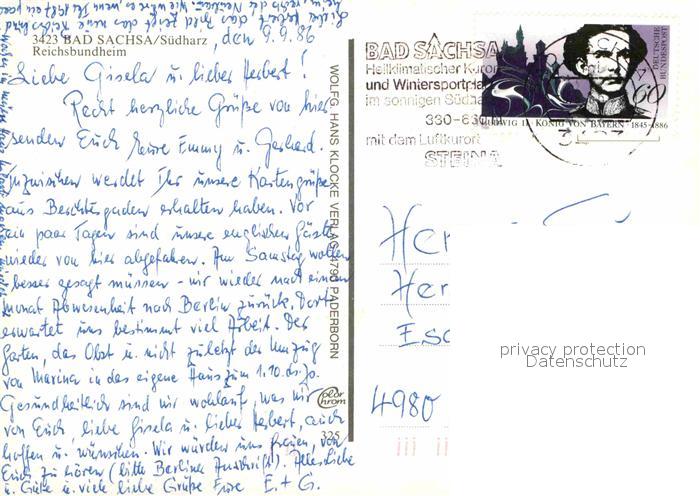 3423 BAD SACHSA/Südharz
Reichsbundheim
, den 9.9.86
Liebe Gisela u. lieber Herbert!
Recht herzliche Grüße von hier
senden Euch Eure Emmy u. Gerhard.
Inzwischen werdet Ihr unsere Kartengrüße
aus Berchtesgaden erhalten haben. Vor
ein paar Tagen sind unsere englischen Gäste
wieder von hier abgefahren. Am Samstag wollen
besser gesagt müssen - wir wieder nach einem
Monat Abwesenheit nach Berlin zurück. Dort
erwartet uns bestimmt viel Arbeit. Der
Garten, das Obst u. nicht zuletzt der Umzug
von Marina in das eigene Haus zum 1.10. ds. Js.
Gesundheitlich sind wir wohlauf, was wir
von Euch, liebe Gisela u. lieber Herbert, auch
hoffen u. wünschen. Wir würden uns freuen, von
Euch zu hören (bitte Berliner Anschrift). Alles Liebe
u. Gute u. viele liebe Grüße Eure E. + G.
WOLFG. HANS KLOCKE VERLAG, 4790 PADERBORN
color
chrom
325
BAD SACHSA
Heilklimatischer Kurort
und Wintersportplatz
im sonnigen Südharz
330-630 m
mit dem Luftkurort
STEINA
DEUTSCHE
BUNDESPOST
60
LUDWIG II. KÖNIG VON BAYERN 1845-1886
Her
Her
Esc
4980
privacy protection
Datenschutz